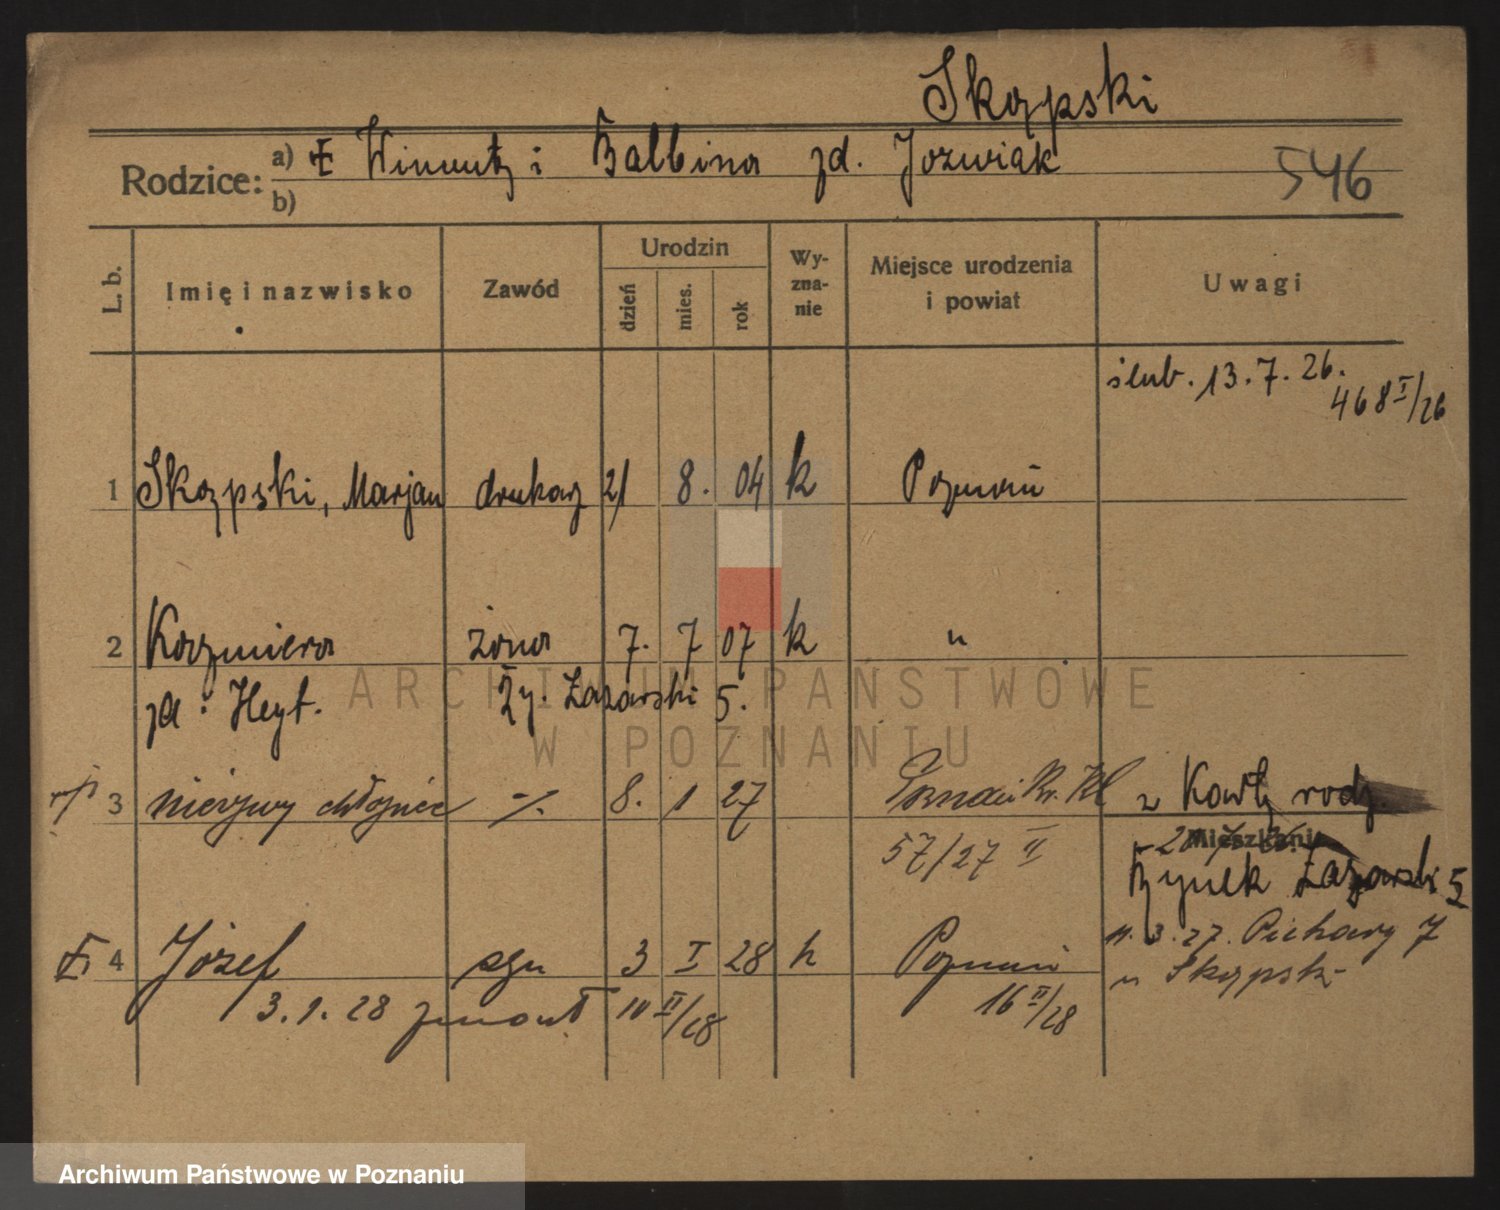 Skrzypski
Rodzice: a) Wincenty i Balbina zd. Jozwiak
b)
546
L. b. Imię i nazwisko Zawód Urodzin dzień mies. rok Wy-zna-nie Miejsce urodzenia i powiat Uwagi
ślub. 13.7.26.
468 I/26
1 Skrzypski, Marjan drukarz 21 8. 04 k Poznań
2 Kazimiera żona 7. 7 07 k "
zd. Heyt. Ry. Łazarski 5.
3 nieżywy chłopiec -/. 8. 1 27 Poznań z Karty rodz.
57/27 II
Mieszkanie
Rynek Łazarski 5
4 Józef syn 3 I 28 k Poznań
11.3.27. Piekary 7
u Skrzypski
3.1.28 zmarł 10 II/28 16 II/28
ARCHIWUM PAŃSTWOWE
W POZNANIU
Archiwum Państwowe w Poznaniu